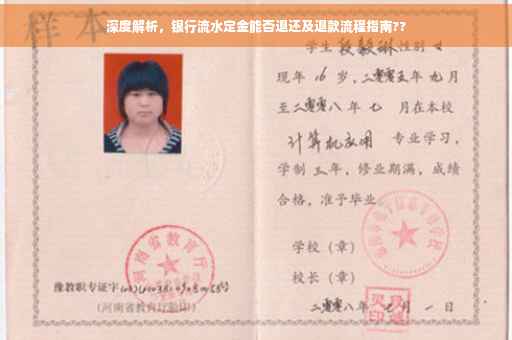 深度解析，银行流水定金能否退还及退款流程指南??
样本
学生段毅琳性别女
现年16岁，二零零五年九月
至二零零八年七月在本校
计算机应用 专业学习，
学制三年，修业期满，成绩
合格，准予毕业
学校（章）
校长（章）
二零零八年七月一日
河南省教育厅
豫教职专证字
（河南省教育厅验印）